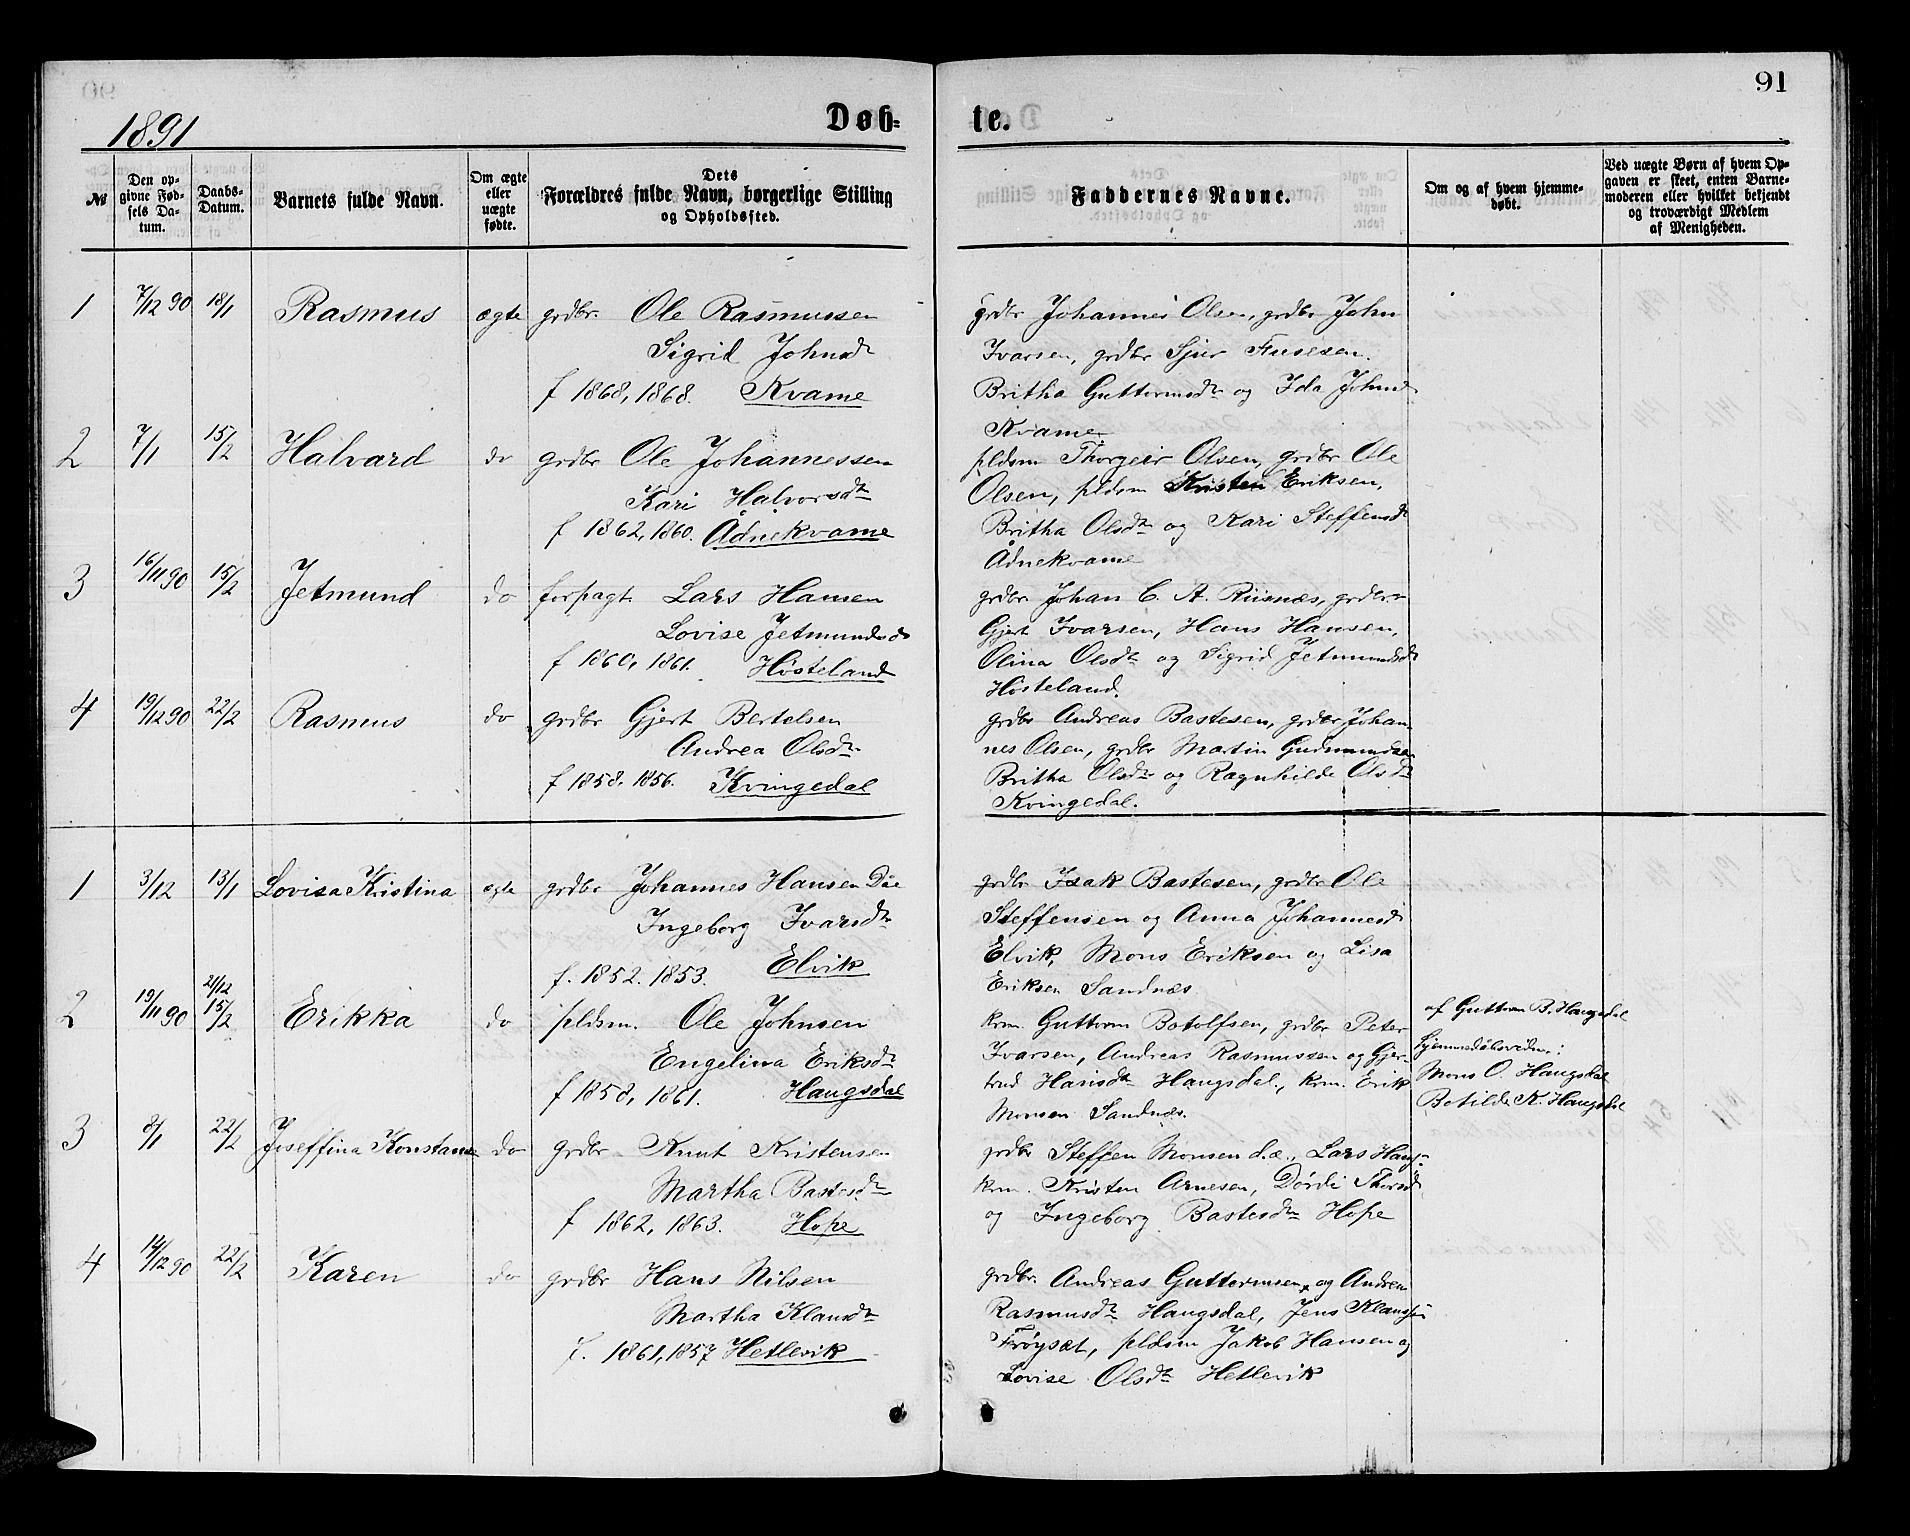 91
1891
Døb=
te.
№
Den op-
givne Fød-
sels Da-
tum.
Daabs-
Datum.
Barnets fulde Navn.
Om ægte
eller
uægte
fødte.
Dets
Forældres fulde Navn, borgerlige Stilling
og Opholdssted.
Faddernes Navne.
Om og af hvem hjemme-
døbt.
Ved uægte Børn af hvem Op-
gaven er skeet, enten Barne-
moderen eller hvilket bekjendt
og troværdigt Medlem
af Menigheden.
1 7/12 90 18/1 Rasmus ægte grdbr. Ole Rasmussen
Sigrid Johnsdtr
f 1868, 1868. Kvame
grdbr Johannes Olsen, grdbr John
Ivarsen, grdbr Sjur
Britha Guttormsdtr og Ida Johnsd
Kvame
2 7/1 15/2 Halvard do grdbr Ole Johannessen
Kari Halvorsdtr
f 1862, 1860. Ådnekvame
pldsm Thorgeir Olsen, grdbr Ole
Olsen, pldsm Kristen Eriksen,
Britha Olsdtr og Kari Steffensdtr
Ådnekvame
3 16/11 90 15/2 Jetmund do forpagt. Lars Hansen
Lovise Jetmundsd
f 1860, 1861. Høsteland
grdbr Johan C. A. Riisnæs, grdbr
Gjert Ivarsen, Hans Hansen,
Olina Olsdtr og Sigrid Jetmundsd
Høsteland.
4 19/12 90 22/2 Rasmus do grdbr Gjert Bertelsen
Andrea Olsdtr
f 1858, 1856. Kvingedal
grdbr Andreas Bastesen, grdbr Johan-
nes Olsen, grdbr Martin Gudmundsen
Britha Olsdtr og Ragnhilde Olsdtr
Kvingedal.
1 3/12 13/1 Lovisa Kristina ægte grdbr Johannes Hansen Døe
Ingeborg Ivarsdtr
f. 1852. 1853. Elvik
grdbr Isak Bastesen, grdbr Ole
Steffensen og Anna Johannesd
Elvik, Mons Eriksen og Lisa
Eriksen Sandnæs
21/12
2 19/11 90 15/2 Erikka do pldsm. Ole Johnsen
Engelina Eriksdtr
f 1858, 1861. Haugsdal
krm. Guttorm Botolfsen, grdbr Peter
Ivarsen, Andreas Rasmussen og Gjer-
trud Hansdtr Haugsdal, krm. Erik
Monsen Sandnæs.
af Guttorm B. Haugsdal
hjemmedøbsvidn.:
Mons O. Haugsdal
Botilde K. Haugsdal
3 8/1 22/2 Joseffina Konstanse do grdbr Knut Kristensen
Martha Bastesdtr
f 1862, 1863. Hope
grdbr Steffen Monsen d.æ., Lars Haug-
krm. Kristen Arnesen, Dørdi Thorsd
og Ingeborg Bastesdtr Hope
4 14/12 90 22/2 Karen do grdbr Hans Nilsen
Martha Klausdtr
f. 1861, 1857 Hetlevik
grdbr. Andreas Guttormsen og Andrea
Rasmusdtr Haugsdal, Jens Klaussen
Frøysæt, pldsm Jakob Hansen og
Lovise Olsdtr Hetlevik